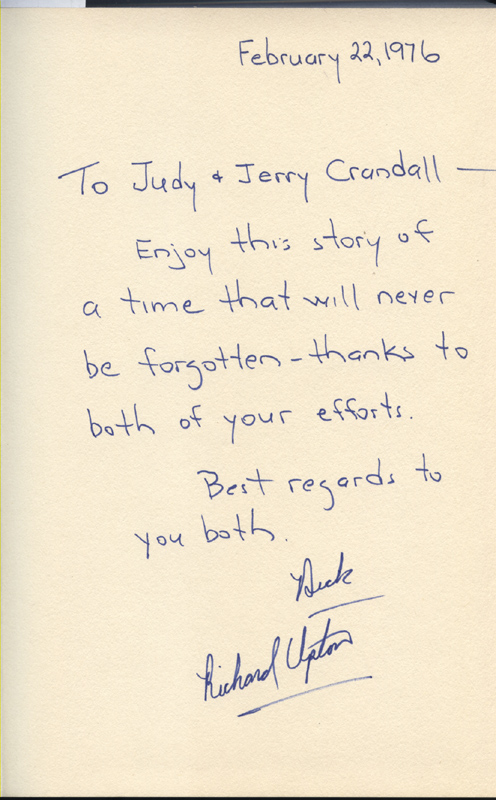 February 22, 1976
To Judy & Jerry Crandall —
Enjoy this story of
a time that will never
be forgotten - thanks to
both of your efforts.
Best regards to
you both.
Dick
Richard Upton